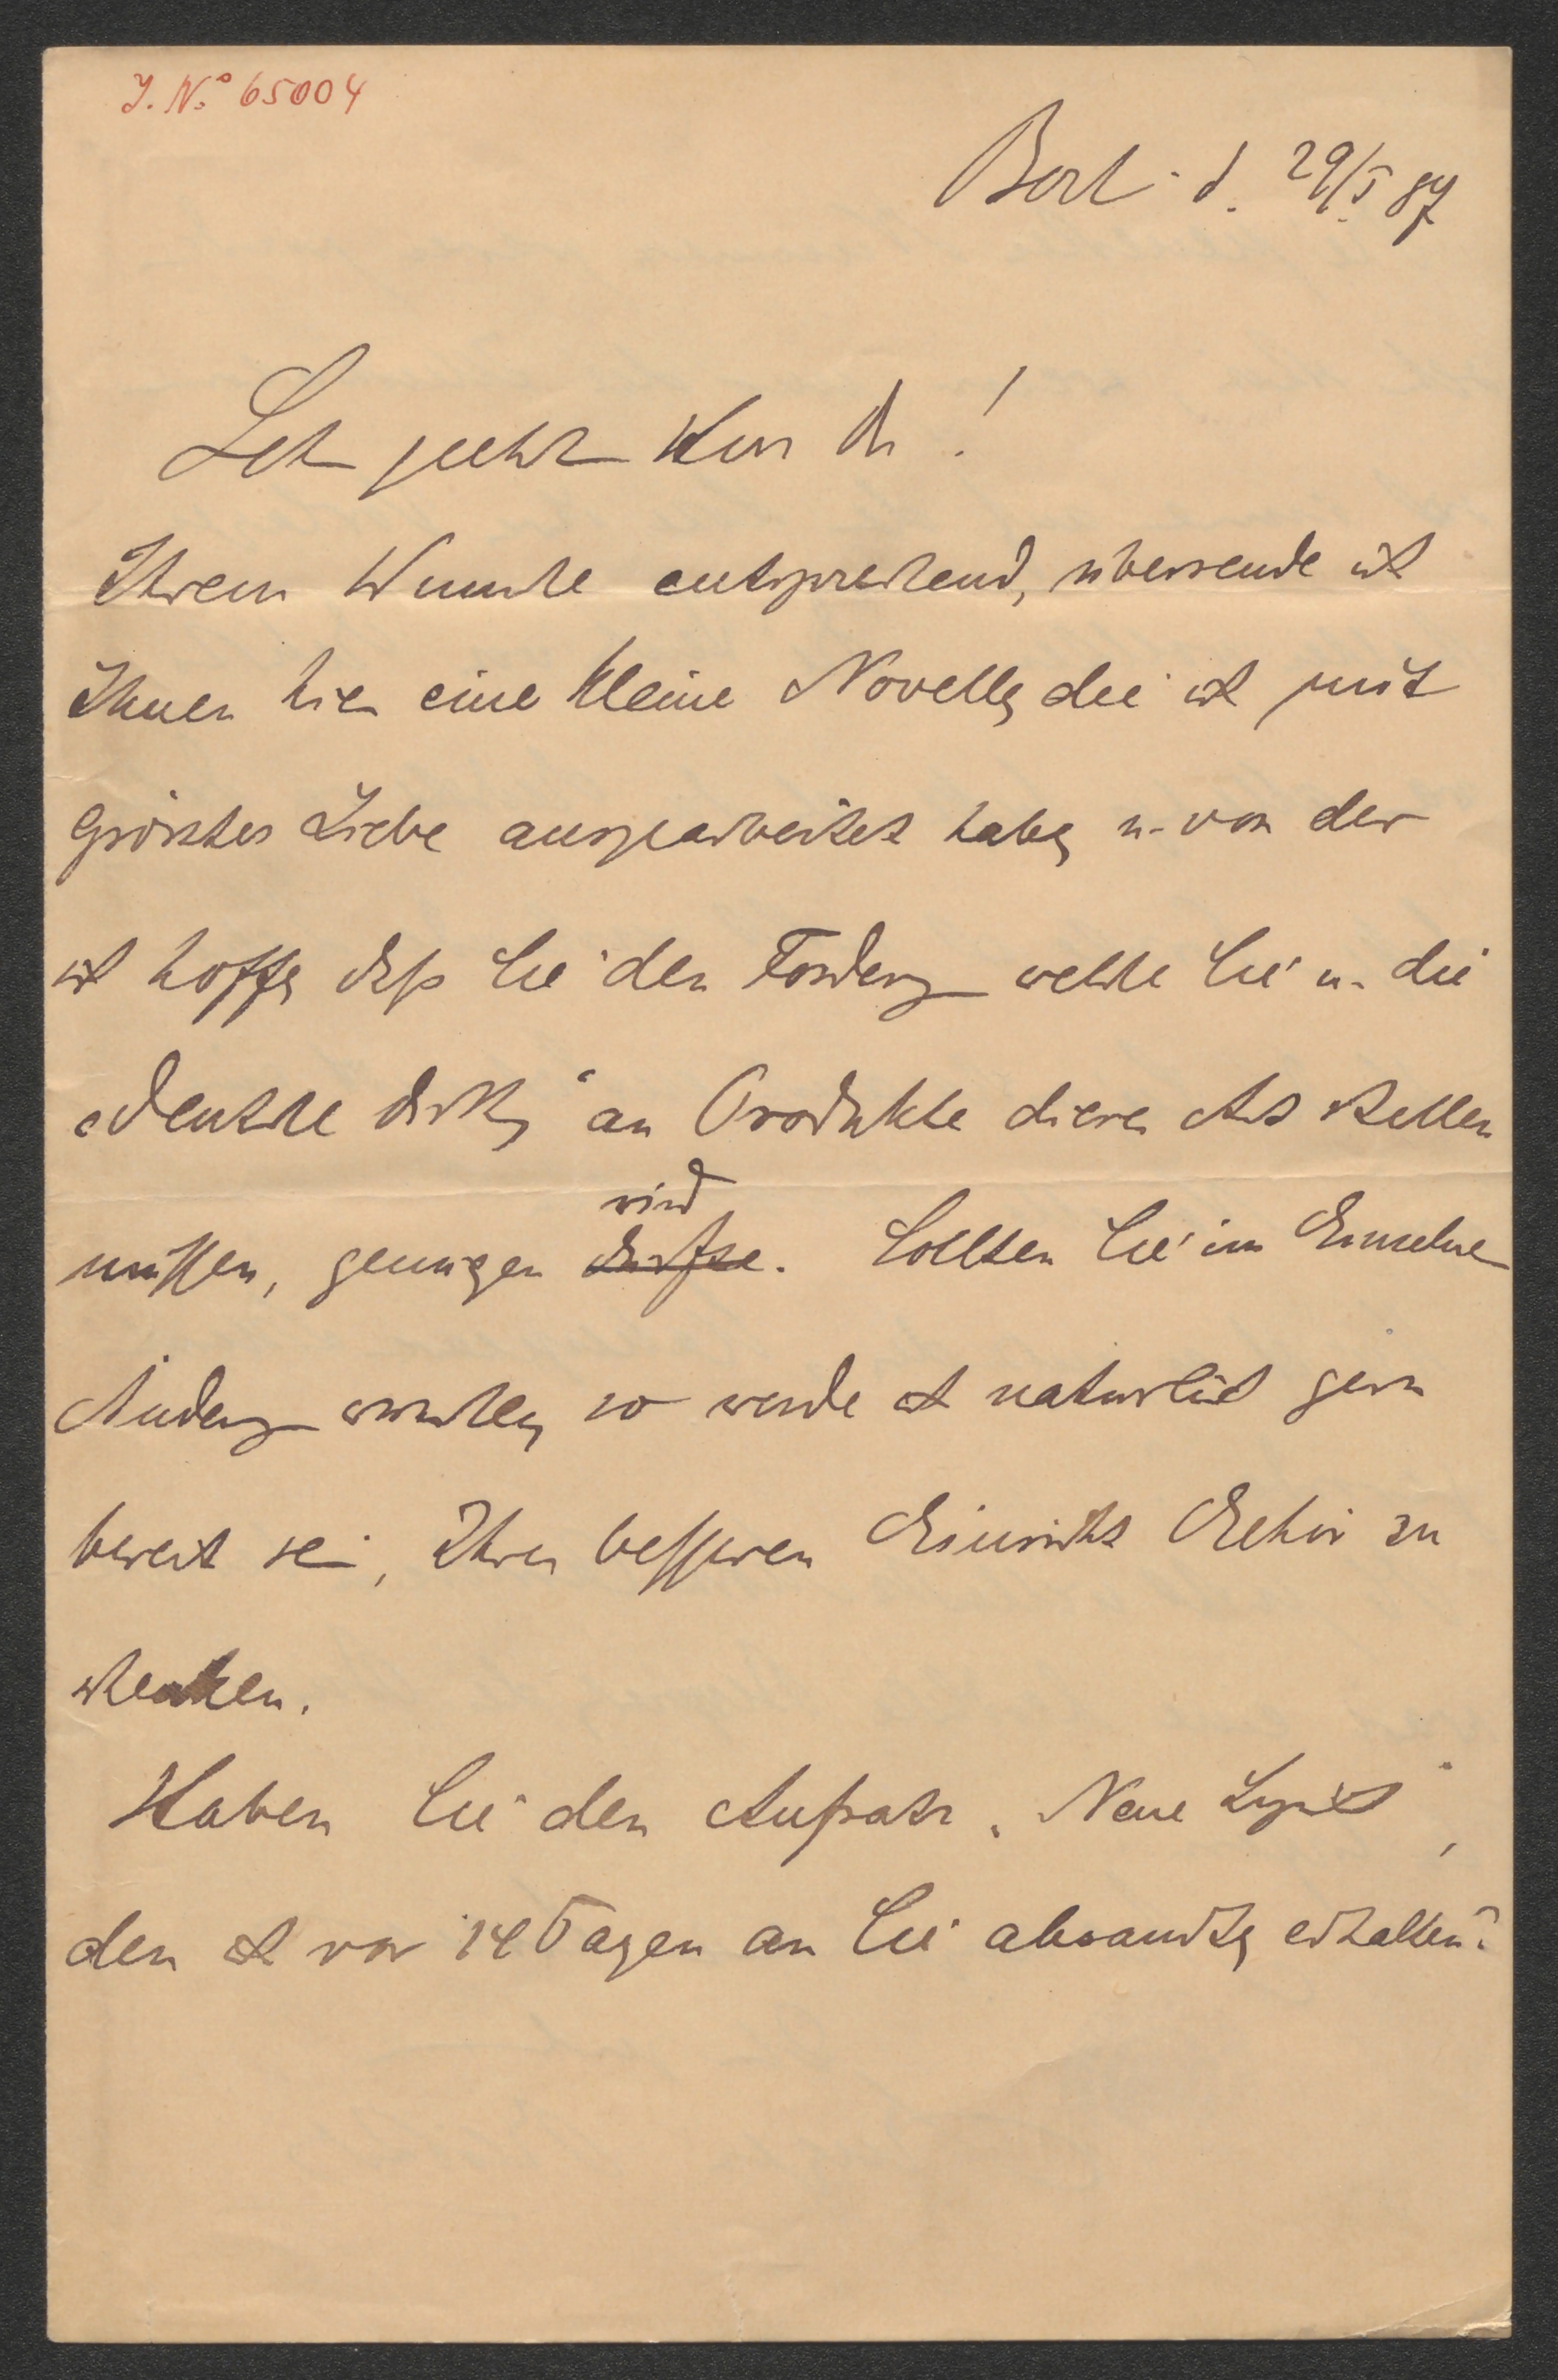 J. No 65004
Berl. d. 29/5 87
Sehr geehrter Herr Dr!
Ihrem Wunsche entsprechend, übersende ich
Ihnen hier eine kleine Novelle, die ich mit
grösster Liebe ausgearbeitet habe, u. von der
ich hoffe, daß Sie den Forderung welche Sie u. die
"Deutsche" an Produkte dieser Art stellen
müssen, genügen wird dürfte. Sollten Sie im Einzelne
Änderung wünschen, so werde ich natürlich gern
bereit sein, Ihrer besseren Einsicht Gehör zu
schenken.
Haben Sie den Aufsatz „Neue Lyrik",
den ich vor 14 Tagen an Sie absandte, erhalten?